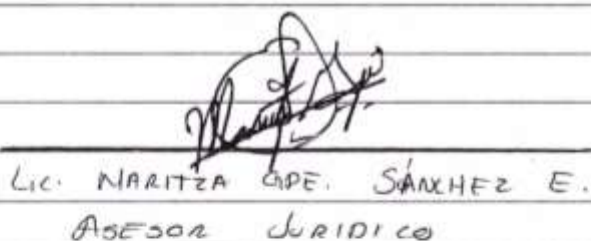 Lic. MARITZA GPE. SÁNCHEZ E.
ASESOR JURIDICO